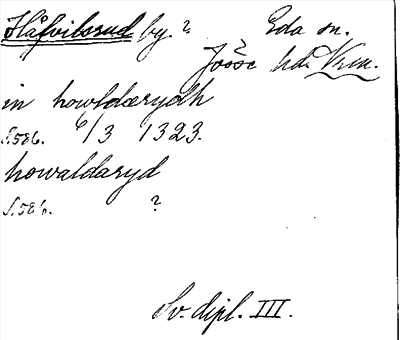 Håfvilsrud by. ? Eda sn.
Jösse hd. Vrm.
in howfdærydh
S. 586. 6/3 1323.
howaldaryd
S. 586. ?
Sv. dipl. III.